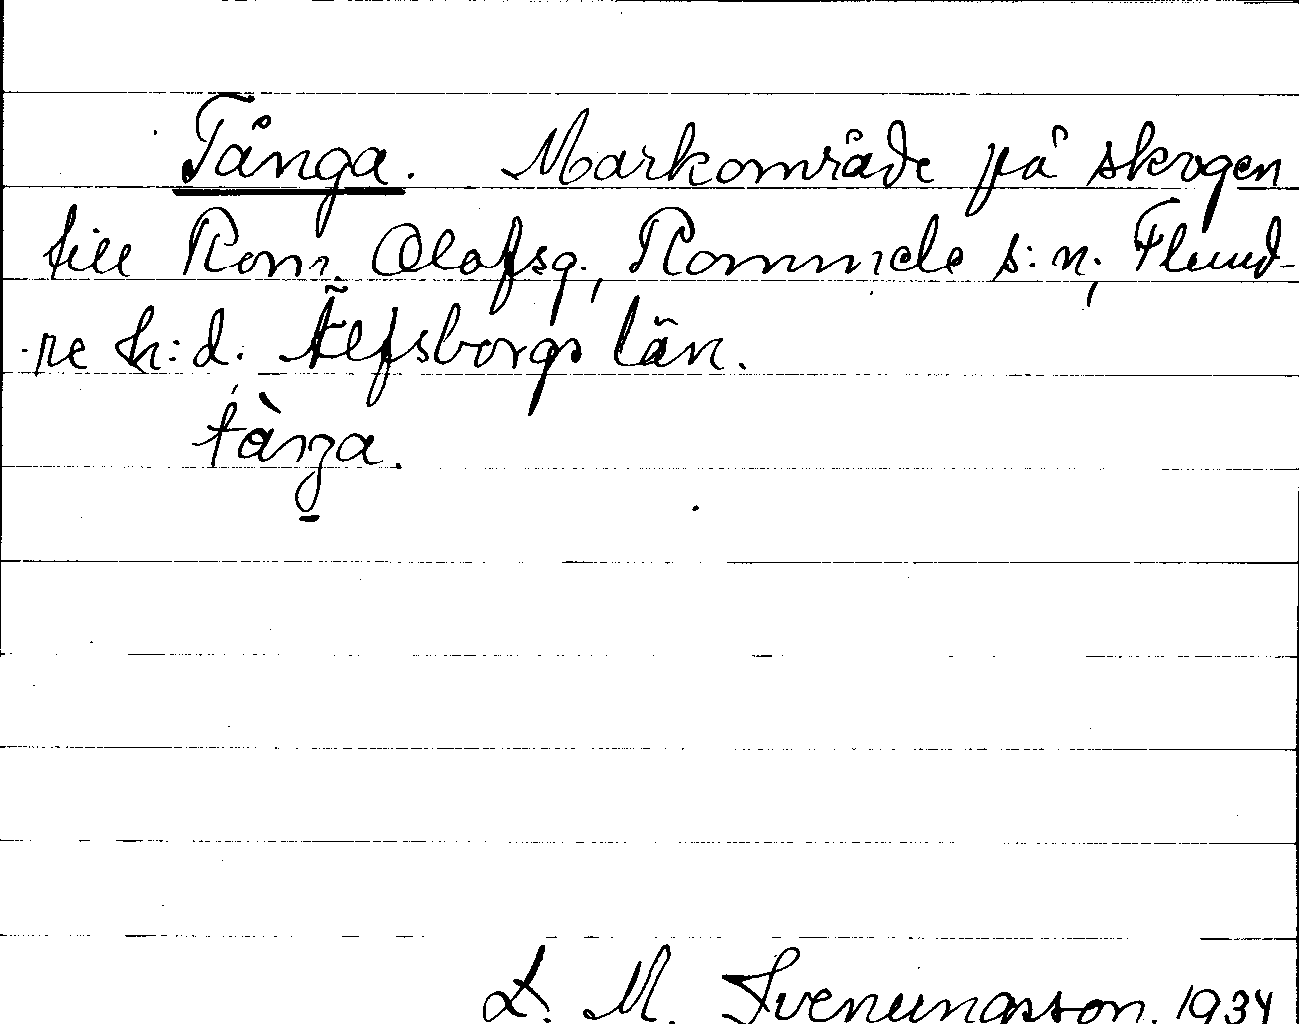 Tånga. Markområde på skogen
till Rom. Olafsg., Rommele s:n; Flund-
re h:d. Älfsborgs län.
tànga.
D. M. Svenungsson. 1934